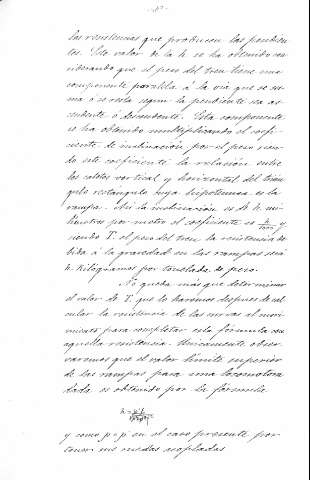 las resistencias que producen las pendien-
tes. Este valor de la h se ha obtenido con-
siderando que el peso del tren tiene una
componente paralela á la via que se su-
ma ó se resta segun la pendiente sea as-
cendente ó descendente. Esta componente
se ha obtenido multiplicando el coefi-
ciente de inclinación por el peso sien-
do este coeficiente la relación entre
los catetos vertical y horizontal del trián-
gulo rectángulo cuya hipotenusa es la
rampa. Asi la inclinación es de h mi-
límetros por metro el coeficiente es h/1000 y
siendo T. el peso del tren la resistencia de-
bida á la gravedad en las rampas será
h. kilógramos por tonelada de peso.
No queda mas que determinar
el valor de T. que lo haremos despues de cal-
cular la resistencia de las curvas al movi-
miento para completar esta fórmula con
aquella resistencia. Unicamente obser-
varemos que el valor limite superior
de las rampas para una locomotora
dada es obtenido por la fórmula
y como p = p en el caso presente por
tener seis ruedas acopladas